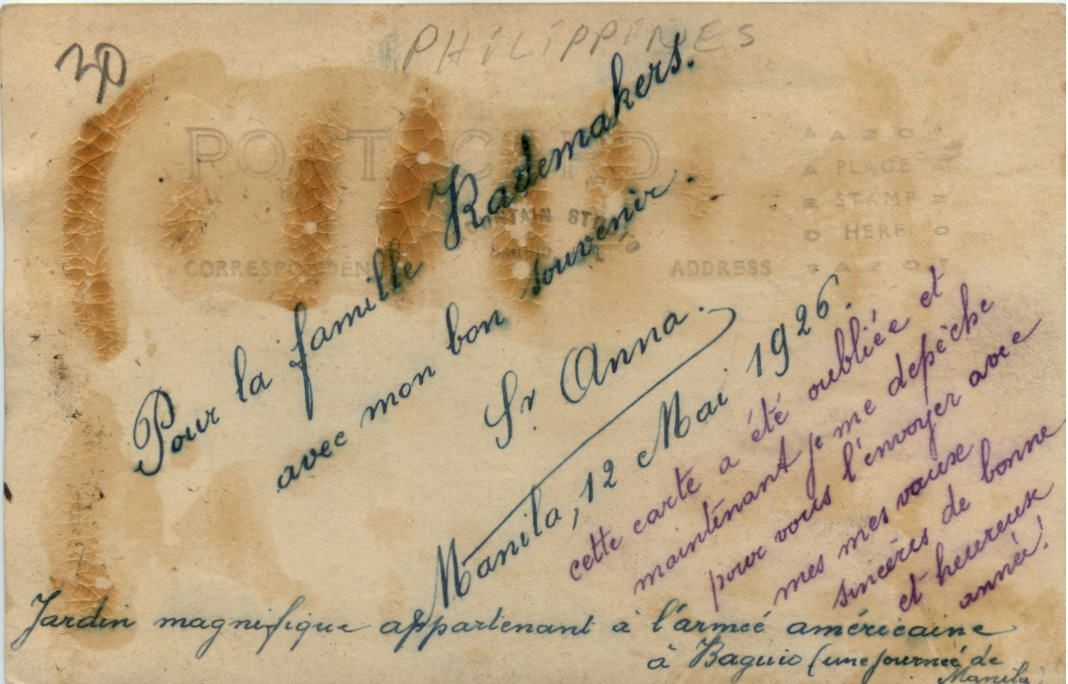 30
PHILIPPINES
POST CARD
CORRESPONDENCE
ADDRESS
AZO
PLACE
STAMP
HERE
Pour la famille Rademakers.
avec mon bon souvenir.
Sr Anna.
Manila, 12 Mai 1926.
cette carte a été oubliée et
maintenant je me depêche
pour vous l'envoyer avec
mes mes vœux
sincères de bonne
et heureuse
année!
Jardin magnifique appartenant à l'armeé américaine
à Baguio (une journeé de
Manila)